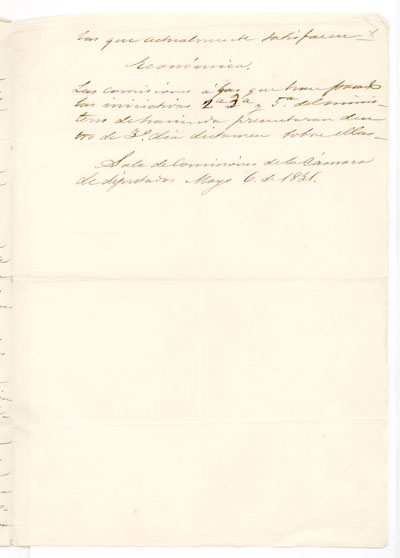 las que actualmente satisfacen
Económica.
Las comisiones á las que han pasado
las iniciativas 2ª 3ª y 5ª del minis-
terio de hacienda presentaran den-
tro de 3º dia dictamen sobre ellas—
Sala de Comisiones de la Cámara
de diputados Mayo 6 de 1851.